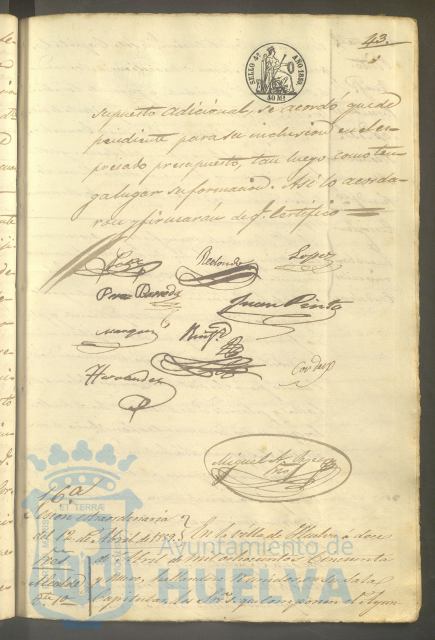 43.
SELLO 4º AÑO 1859
50 Mˢ
supuesto adicional, se acordo quede
pendiente para su inclusion en el es-
presado presupuesto, tan luego como ten-
ga lugar su formacion. Asi lo acorda-
ron y firmaran de q.e Certifico
Redondo Lopez
Juan Pinto
Marquez
Hernandez Cordero
Miguel
Srio
ET TERRAE
16ª
Sesion estraordinaria
del 12 de Abril de 1859. En la villa de Huelva a doce
de Abril de mil ochocientos cincuenta
Sres
Alcalde y nueve, hallandose reunidos en su Sala
Capitular, los Sres. que componen el Ayun-
Ayuntamiento de
HUELVA